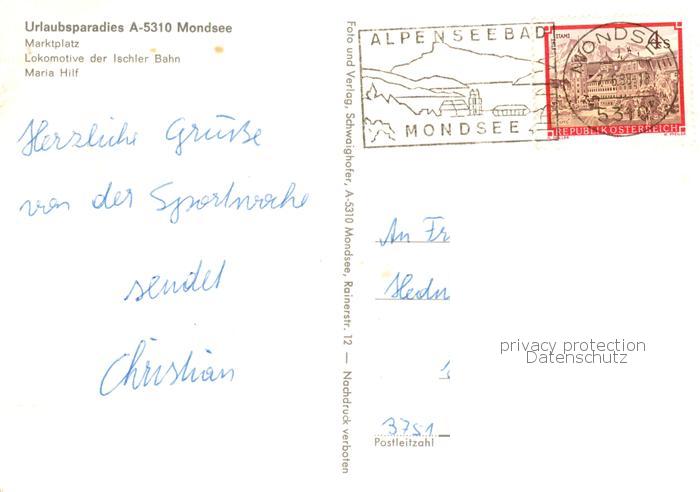 Urlaubsparadies A-5310 Mondsee
Marktplatz
Lokomotive der Ischler Bahn
Maria Hilf
Herzliche Grüße
von der Sportwoche
sendet
Christian
Foto und Verlag, Schwaighofer, A-5310 Mondsee, Rainerstr. 12 — Nachdruck verboten
ALPENSEEBAD
MONDSEE
MONDSEE
5310
REPUBLIK ÖSTERREICH
An Fr
Hedw
3751
Postleitzahl
privacy protection
Datenschutz